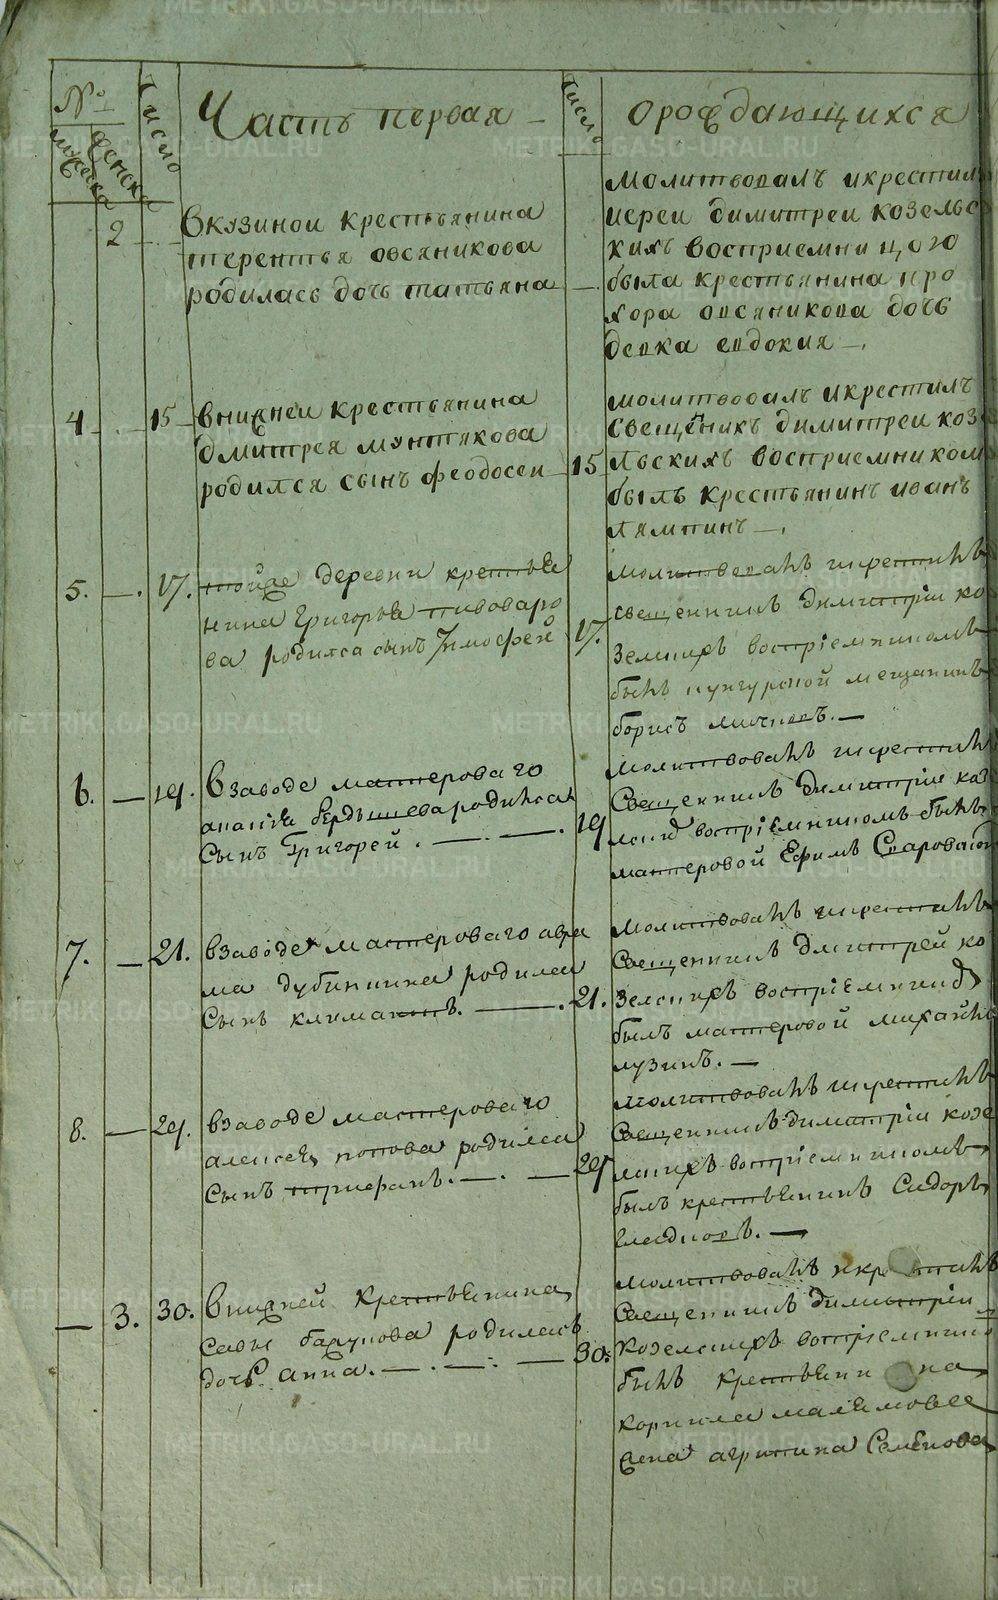 №
мужеска
женска
число
Часть первая
число
орождающихся
2
Вкузинои крестьянина
терентья овсяникова
родилась дочь татьяна
молитвовалъ икрестил
иереи димитреи козельс
кихъ восприемницою
была крестьянина про
хора овсяникова дочь
девка евдокия
4
15
внижнеи крестьянина
дмитрея мунтякова
родился сынъ феодосеи
15
молитвовалъ икрестилъ
свещенникъ димитреи коз
льскихъ восприемником
былъ крестьянинъ иванъ
лямпинъ
5.
17.
тойже деревни крестья
нина григорья пивоваро
ва родился сынъ Тимофей
17.
молитвовалъ икрестилъ
священникъ димитрiи ко
зелскихъ воспрiемникомъ
былъ кунгурской мещанинъ
борисъ
6.
19.
Взаводе мастероваго
анания бердышева родился
сынъ Григорей.
19
молитвовалъ икрестилъ
Священникъ димитрiи коз
воспрiемникомъ былъ
мастеровой Ефимъ
7.
21.
Взаводе мастероваго авра
ма дубинина родился
сынъ климантъ.
21.
молитвовалъ икрестилъ
Священникъ дмитрей ко
зелскихъ воспрiемникъ
былъ мастеровой михайло
лузинъ.
8.
29.
взаводе мастероваго
алексея попова родился
сынъ трифанъ.
29
молитвовалъ икрестилъ
Священникъ димитрiи козе
лскихъ воспрiемникомъ
былъ крестьянинъ Сидоръ
3.
30.
Внижней крестьянина
савы бажукова родилась
дочь анна.
30.
молитвовалъ икр стилъ
Священникъ димитрiи
козелскихъ воспрiемнико
былъ крестьянина
корнила
жена агрипина Семёнова